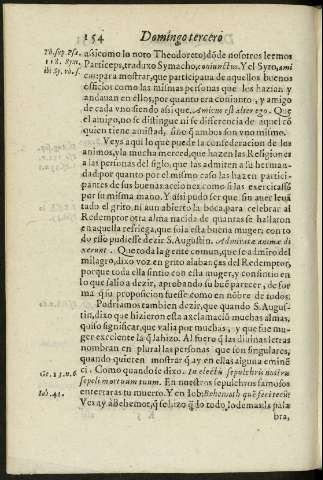 154 Domingo tercero
Th. sup. Psa.
118. Sym.
ibi Sy. vb. s.
assi como lo noto Theodoreto) dõde nosotros leemos
Particeps, traduxo Symacho, coniunctus. Y el Syro, ami
cus: para mostrar, que participaua de aquellos buenos
officios como las mismas personas que los hazian y
andauan en ellos, por quanto era conjunto, y amigo
de cada vno siendo assi que, Amicus est alter ego. Que
el amigo, no se distingue ni se differencia de aquel cõ
quien tiene amistad, sino q̃ ambos son vno mismo.
Veys aqui lo que puede la confederacion de los
animos, y la mucha merced, que hazen las Religiones
a las personas del siglo, que las admiten a su herman-
dad, por quanto por el mismo caso las hazen partici-
pantes de sus buenas acciones como si las exercitassẽ
por su misma mano. Y assi pudo ser que, sin auer leuã
tado el grito, ni aun abierto la boca, para celebrar al
Redemptor otra alma nacida de quantas se hallaron
en aquella refriega, que sola esta buena muger; con to
do esso pudiesse dezir S. Augustin. Admiratæ animæ di
xerunt. Que toda la gente comun, que se admiro del
milagro, dixo voz en grito alabanças del Redemptor,
porque toda ella sintio con esta muger, y consintio en
lo que salio a dezir, aprobando su buẽ parecer, de for
ma q̃ su proposicion fuesse como en nõbre de todos.
Podriamos tambien dezir, que quando S. Augus-
tin, dixo que hizieron esta acclamaciõ muchas almas,
quiso significar, que valia por muchas, y que fue mu-
ger excelente la q̃ la hizo. Al fuero q̃ las diuinas letras
nombran en plural las personas que son singulares,
quando quieren mostrar q̃ ay en ellas alguna eminẽ
Ge. 23. n. 6.
ci. Como quando se dixo. In electis sepulchris nostris
sepeli mortuum tuum. En nuestros sepulchros famosos
Iob. 41.
enterraras tu muerto. Y en Iob: Behemoth quẽ feci tecũ
Ves ay a Behemot, q̃ se hizo q̃ do todo, lo demas: la pala
bra,